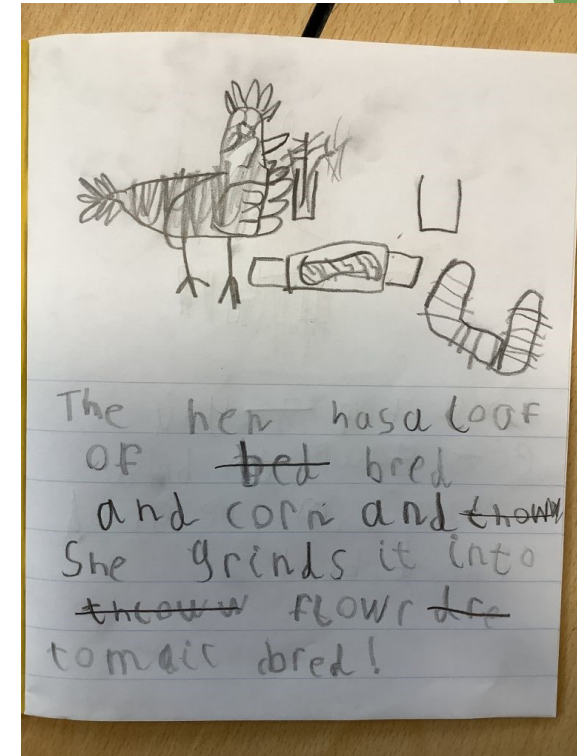 The hen has a loaf
of bed bred
and corn and
She grinds it into
flowr
to maic bred!